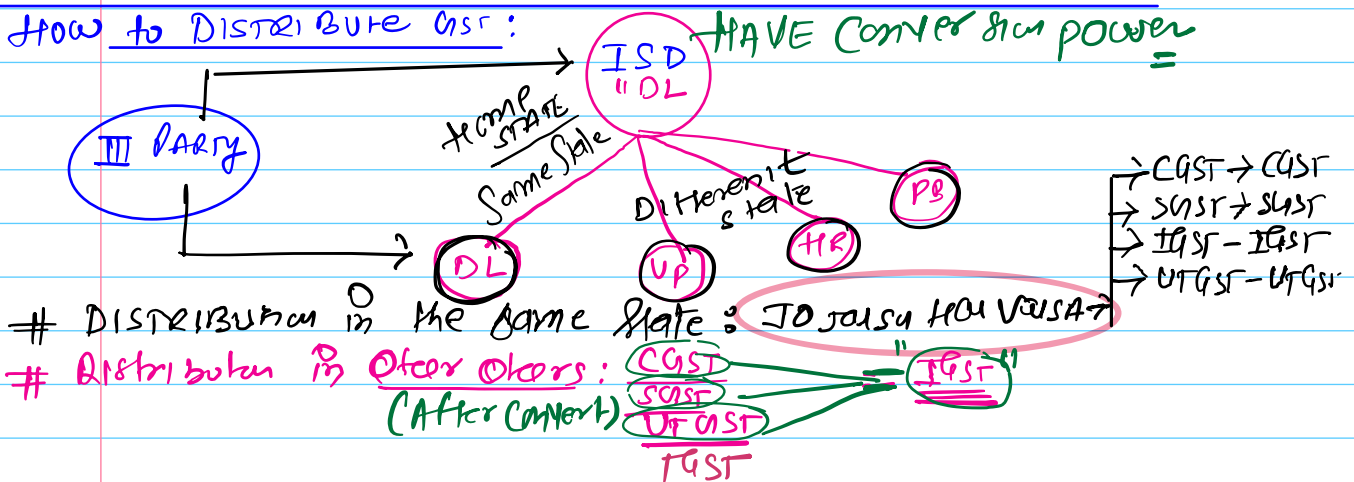 How to DISTRIBUTE GST:
HAVE Conversion power
ISD
"DL
III PARTY
HOME STATE
Same State
Different State
DL
UP
HR
PB
CGST → CGST
SGST → SGST
IGST - IGST
UTGST - UTGST
# DISTRIBUTION in the same State : JO JAISA HAI VAISA
# Distribution in Other Others : CGST "IGST"
SGST
(After Convert) UTGST
IGST